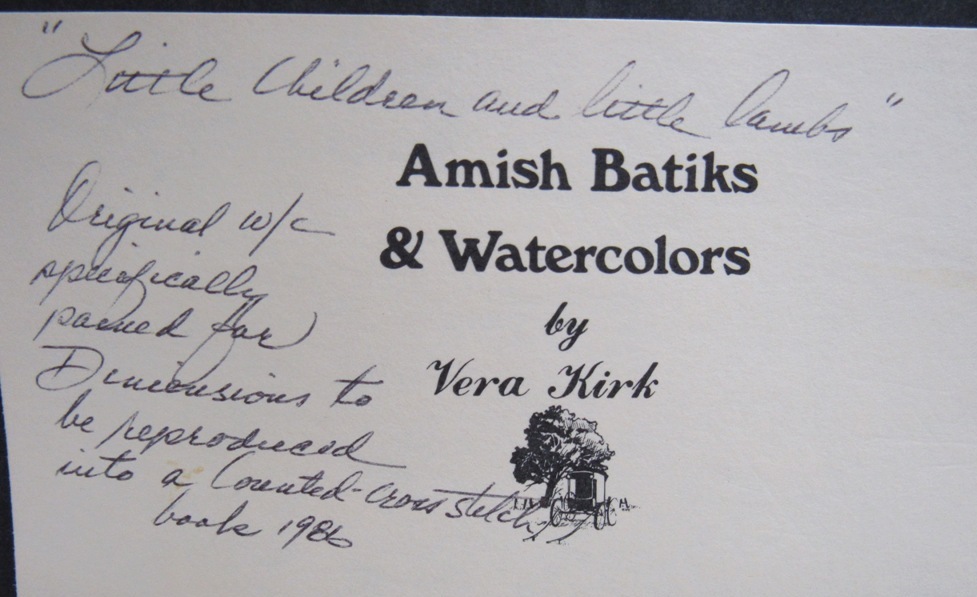 "Little Children and little lambs"
Amish Batiks
& Watercolors
by
Vera Kirk
Original w/c
specifically
pained for
Dimensions to
be reproduced
into a Counted-Cross stitch
book 1986